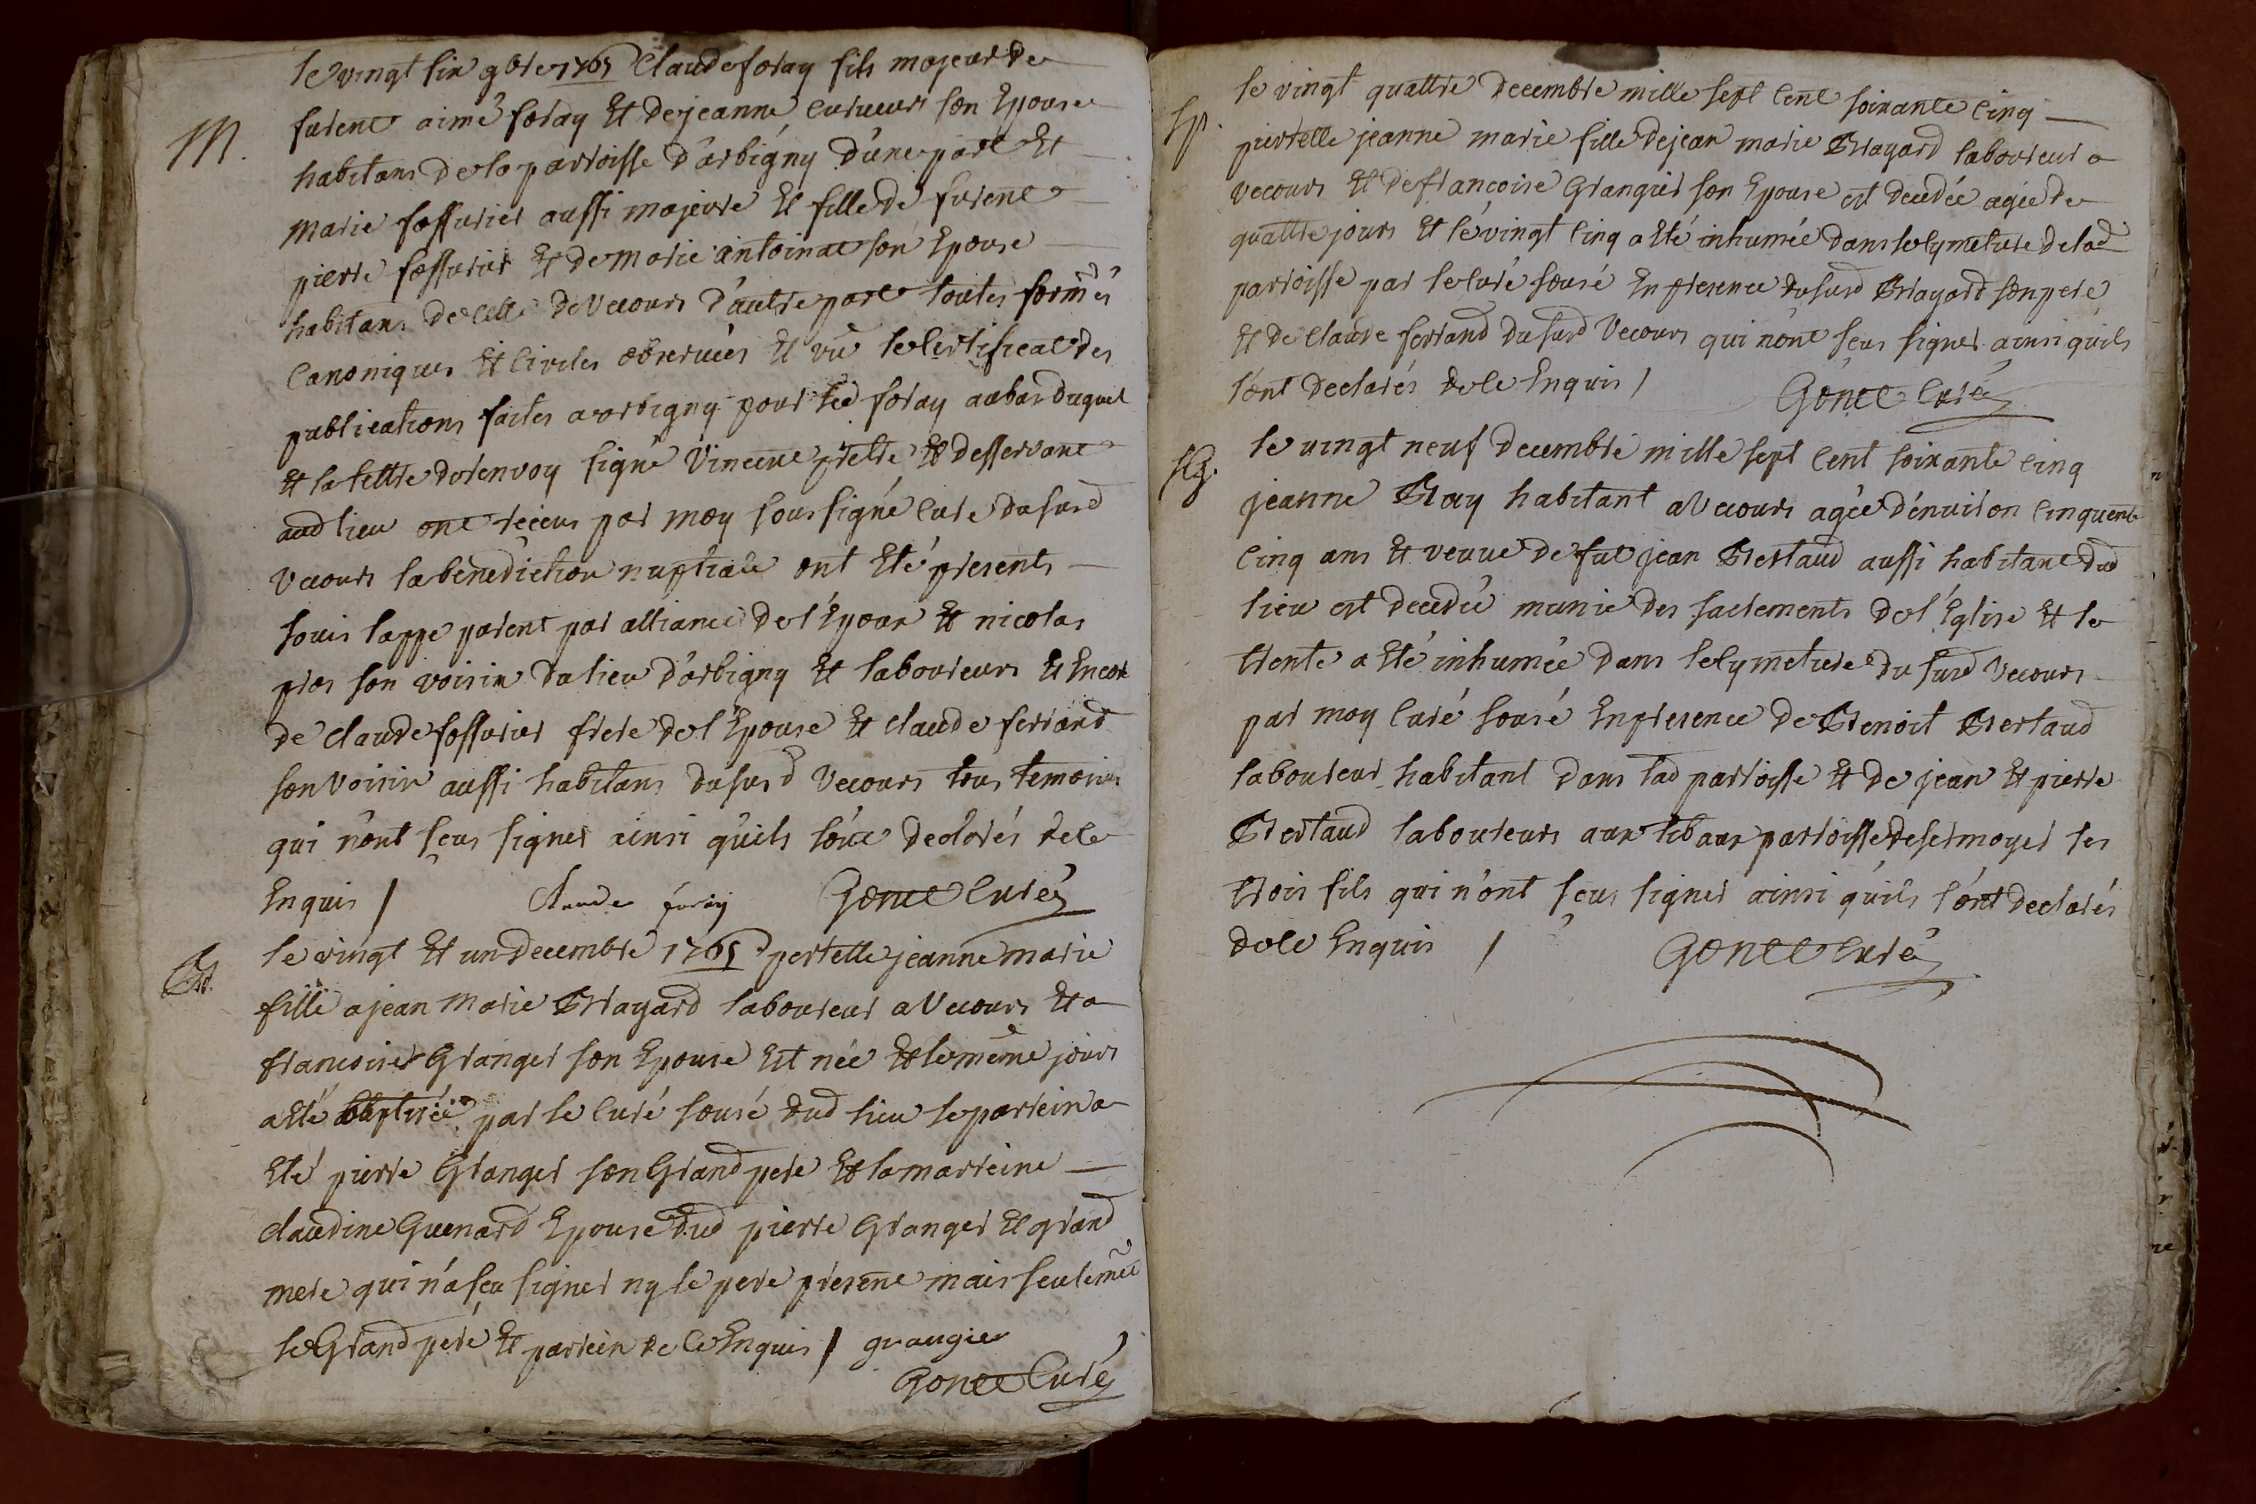 le vingt six 9bre 1765 Claude foray fils majeur de
M.
furent aimé foray Et de jeanne cutueurs son Epouse
habitans de la parroisse d'arbigny d'une part Et
marie fossurier aussi majeure Et fille de furent
pierre fossurier Et de marie antoinat son Epouse
habitans de celle de Vecours d'autre part toutes formes
Canoniques Et Civiles observées Et vû le Certificat des
publications faites a arbigny pour led foray au bas duquel
Et la lettre de renvoy signé Vincent prêtre Et desservant
aud lieu ont receus par moy soussigné Curé du susd
Vecours la benediction nuptiale ont Eté presents
louis lappe parent par alliance de l'Epoux Et nicolas
pros son voisin du lieu d'arbigny Et laboureurs Et Encor
de claude fossurier frere de l'Epouse Et claude ferrand
son Voisin aussi habitans du susd Vecours tous temoins
qui n'ont sçeus signer ainsi qu'ils l'ont declarés de ce
Enquis / Claude foray Gonet Curé
Bt.
le vingt Et un decembre 1765 pertette jeanne marie
fille a jean Marie Brayard laboureur a Vecours Et a
francoise Granger son Epouse Est née Et le même jours
a Eté baptisée par le Curé sousé dud lieu le parrein a
Eté pierre Granger son Grand pere Et la marreine
claudine Guenard Epouse dud pierre Granger Et grand
mere qui n'a sçu signer ny le pere present mais seulemēt
le Grand pere Et parrein de Ce Enquis / grangier
Gonet Curé
Sp.
le vingt quattre decembre mille sept Cent soixante Cinq
pierrette jeanne marie fille de jean marie Brayard laboureur a
vecours Et de francoise Granger son Epouse est decedée agée de
quattre jours Et le vingt Cinq a Eté inhumée dans le Cymetiere de lad
parroisse par le Curé sousé En presence du susd Brayard son pere
Et de Claude ferrand du susd Vecours qui n'ont sçeus signer ainsi qu'ils
l'ont declarés de Ce Enquis / Gonet Curé
Sg.
le vingt neuf decembre mille sept Cent soixante Cinq
jeanne Bray habitant a Vecours agée d'environ Cinquente
Cinq ans Et veuve de fut jean Bertaud aussi habitant dud
lieu est decedée munie des sacrements de l'Eglise Et le
trente a Eté inhumée dans le Cymetiere du susd Vecours
par moy Curé sousé En presence de Benoit Bertaud
laboureur habitant dans lad parroisse Et de jean Et pierre
Bertaud laboureurs aux parroisse de sermoyer ses
trois fils qui n'ont sçeus signer ainsi qu'ils l'ont declarés
de Ce Enquis / Gonet Curé